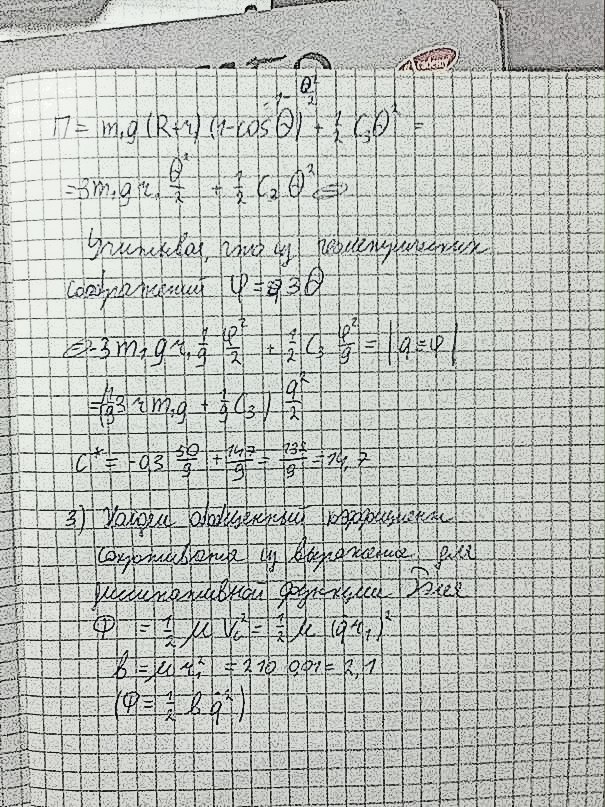 Academy
θ²/2
П = m₁g (R+r) (1-cosθ) + 1/2 C₃θ² =
= 3m₁g r₁ θ²/2 + 1/2 C₂ θ² ⊜
Учитывая, что из геометрических
соображений φ = 3θ
⊜ -3m₁g r₁ 1/9 φ²/2 + 1/2 C₃ φ²/9 = | q=φ |
= (1/9 3 r m₁g + 1/9 C₃) q²/2
C* = -0,3 50/9 + 147/9 = 132/9 = 14,7
3) Найдем обобщенный коэффициент
сопротивления из выражения для
диссипативной функции Рэлея
Ф = 1/2 μ V²= 1/2 μ (q̇r₁)²
b = μ r₁² = 210 0,01 = 2,1
(Ф = 1/2 b q̇²)